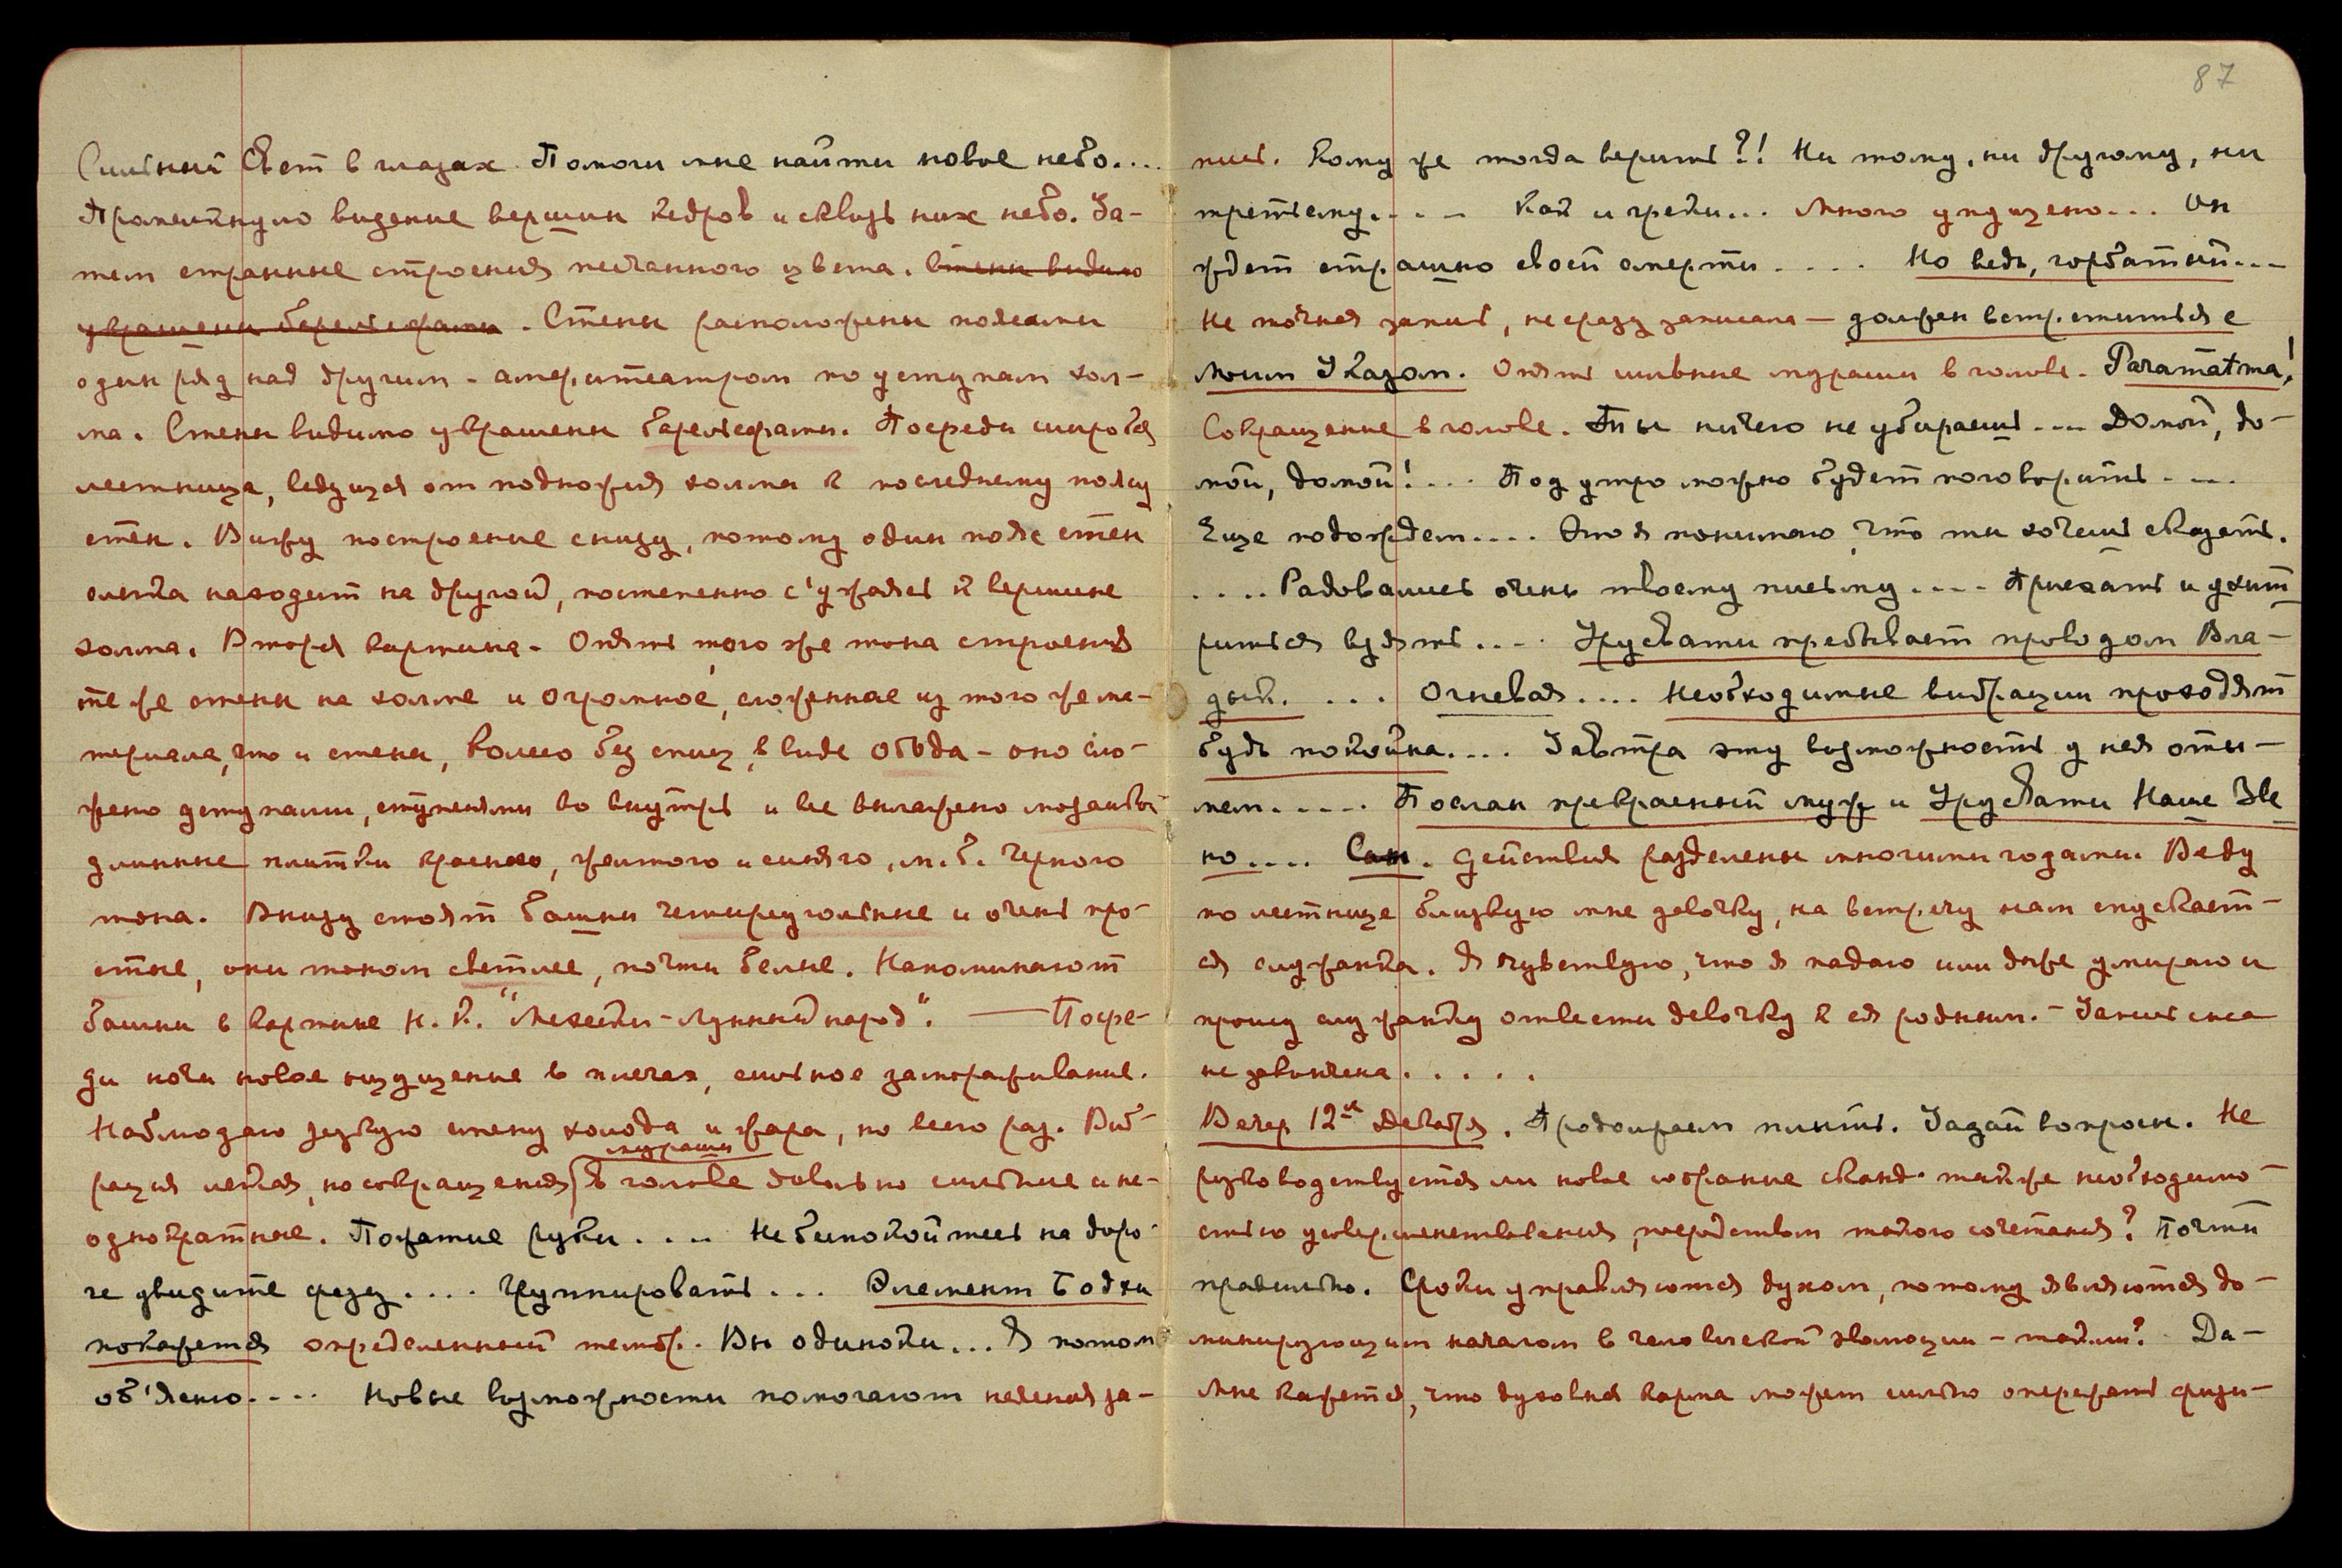 Сильный свет в глазах. Помоги мне найти новое небо....
Промелькнуло видение вершин кедров и сквозь них небо. За-
тем странные строения песчанного цвета. Стены видимо
украшены барельефами. Стены расположены поясами
один ряд над другим - амфитеатром по уступам хол-
ма. Стены видимо украшены барельефами. Посреди широкая
лестница, ведущая от подножия холма к последнему поясу
стен. Вижу построение снизу, потому один пояс стен
слегка находит на другой, постепенно с'ужаясь к вершине
холма. Вторая картина - Опять того же тона строения
те же стены на холме и огромное, сложенное из того же ма-
териала, что и стены, колесо без спиц, в виде обода - оно сло-
жено уступами, ступенями во внутрь и все выложено мозаикой
длинные плитки красного, желтого и синяго, м.б. черного
тона. Внизу стоят башни четыреугольные и очень про-
стые, они тоном светлее, почти белые. Напоминают
башни в картине Н.К. "Мехески - Лунный народ". — Посре-
ди ночи новое ощущение в плечах, сильное замораживание.
Наблюдаю резкую смену холода и жара, по всего раз. Виб-
мураши
рация легкая, но сокращения в голове довольно сильные и не-
однократные. Пожатие руки.... Не беспокойтесь на доро-
ге увидите фазу.... Группировать... Элемент Бодхи
покажется определенный тембр. Вы одиноки... Я потом
об'ясню.... Новые возможности помогают неясная за-
87
пись. Кому же тогда верить?! Ни тому, ни другому, ни
третьему.... Кай и греки... Много упущено... Он
ждет страшно своей смерти..... Но ведь, горбатый...
Не точная запись, не сразу записала — должен встретиться с
Моим Указом. Опять сильные мураши в голове. Paramatma!
Сокращение в голове. Ты ничего не убираешь.... Домой, до-
мой, домой!... Под утро можно будет поговорить....
Еще подождем.... Это я понимаю, что ты хочешь сказать.
.... Радовались очень твоему письму.... Приехать и ухит-
риться взять.... Урусвати пребывает проводом Вла-
дык.... Огневая.... Необходимые вибрации проходят
будь покойна.... Завтра эту возможность у нея оты-
мем..... Послан прекрасный муж и Урусвати Наше Зве
но.... Сон. Действия разделены многими годами. Веду
по лестнице близкую мне девочку, на встречу нам спускает-
ся служанка. Я чувствую, что я падаю или даже умираю и
прошу служанку отвести девочку к ея родным. - Запись сна
не закончена.....
Вечер 12го Декабря. Продолжаем писать. Задай вопросы. Не
руководствуется ли новое собрание сканд. также необходимо-
стью усовершенствования, посредством такого сочетания? Почти
правильно. Сроки управляются духом, потому являются до-
минирующим началом в человеческой эволюции - так ли? Да -
Мне кажется, что духовная карма может сильно опережать физи-